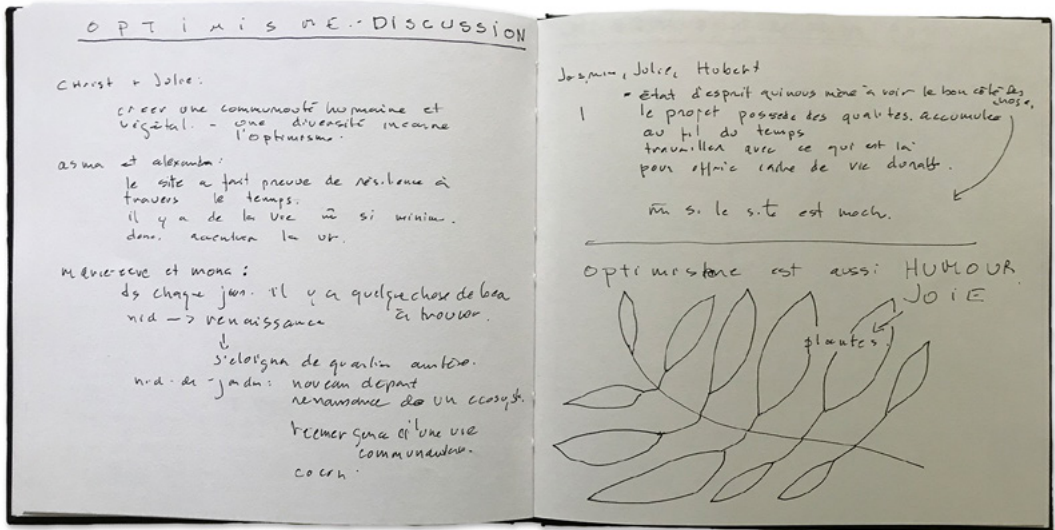 OPTIMISME - DISCUSSION
Christ + Julie:
créer une communauté humaine et
végétal. - une diversité incarne
l'optimisme.
asma et alexandra:
le site a fait preuve de résilience à
travers le temps.
il y a de la vie m̄ si minim.
donc. accentuer la vie.
marie-eve et mona:
ds chaque jour. il y a quelque chose de beau
à trouver.
nid → renaissance
↓
s'eloigner de quartier austère.
nid-de-jardin: nouveau départ
renaissance de un ecosyst.
réemergence d'une vie
communautaire.
cocon.
Jasmin, Julie, Hubert
- état d'esprit qui nous mène à voir le bon côté des
choses,
le projet possède des qualités accumulées
au fil du temps
travailler avec ce qui est là
pour offrir cadre de vie durable.
m̄ si le site est moche.
optimisme est aussi HUMOUR
JOIE
plantes.